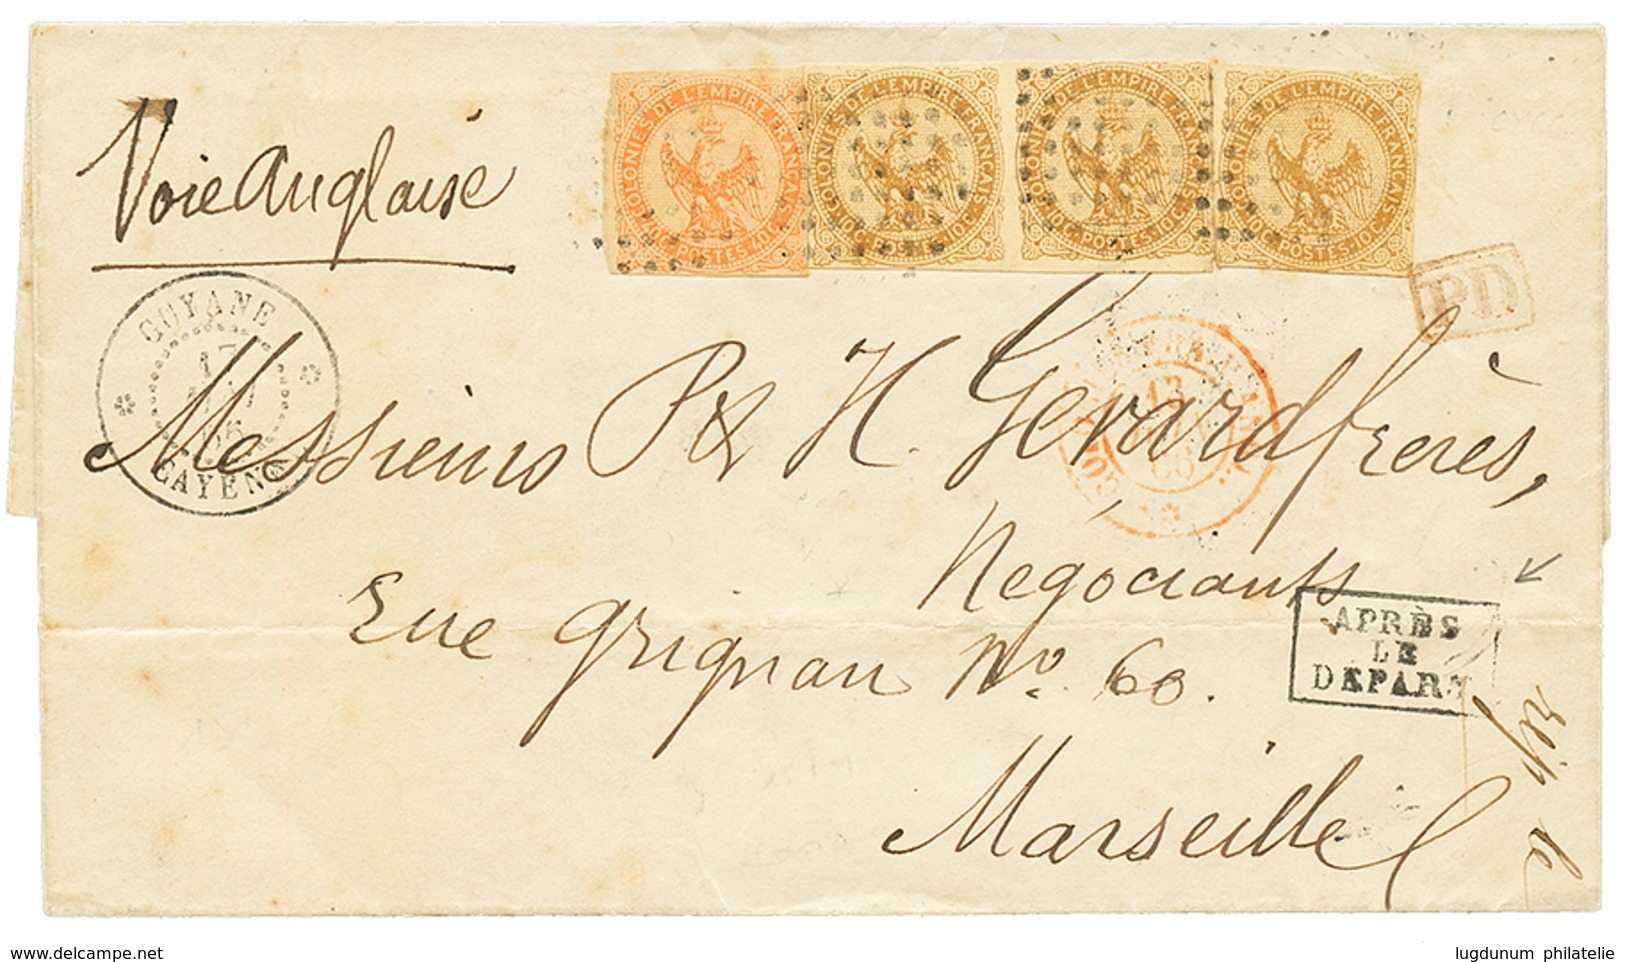 Voie Anglaise
COLONIES DE L'EMPIRE FRANÇAIS
40C. POSTES. 40C.
COLONIES DE L'EMPIRE FRANÇAIS
10C. POSTES. 10C.
COLONIES DE L'EMPIRE FRANÇAIS
10C. POSTES. 10C.
COLONIES DE L'EMPIRE FRANÇAIS
10C. POSTES. 10C.
PD
GUYANE
17
66
CAYENNE
13
66
Messieurs P & H. Gérard frères,
Négociants
Rue Grignan No. 60.
Marseille
APRÈS
LE
DEPART
www.delcampe.net
lugdunum philatelie